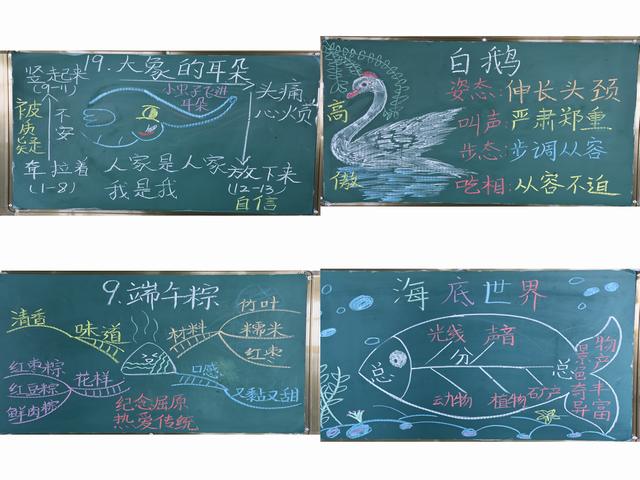 19.大象的耳朵
竖起来
(9-11)
小虫子飞进
耳朵
头痛
心烦
被质疑
不安
耷拉着
(1-8)
人家是人家
我是我
放下来
(12-13)
自信
白鹅
高
傲
姿态:伸长头颈
叫声:严肃郑重
步态:步调从容
吃相:从容不迫
9.端午粽
清香
味道
总
材料
竹叶
糯米
红枣
红枣粽
红豆粽
鲜肉粽
花样
口感
又黏又甜
纪念屈原
热爱传统
海底世界
光线
声音
总
分
总
动物
植物
矿产
景色奇异
物产丰富